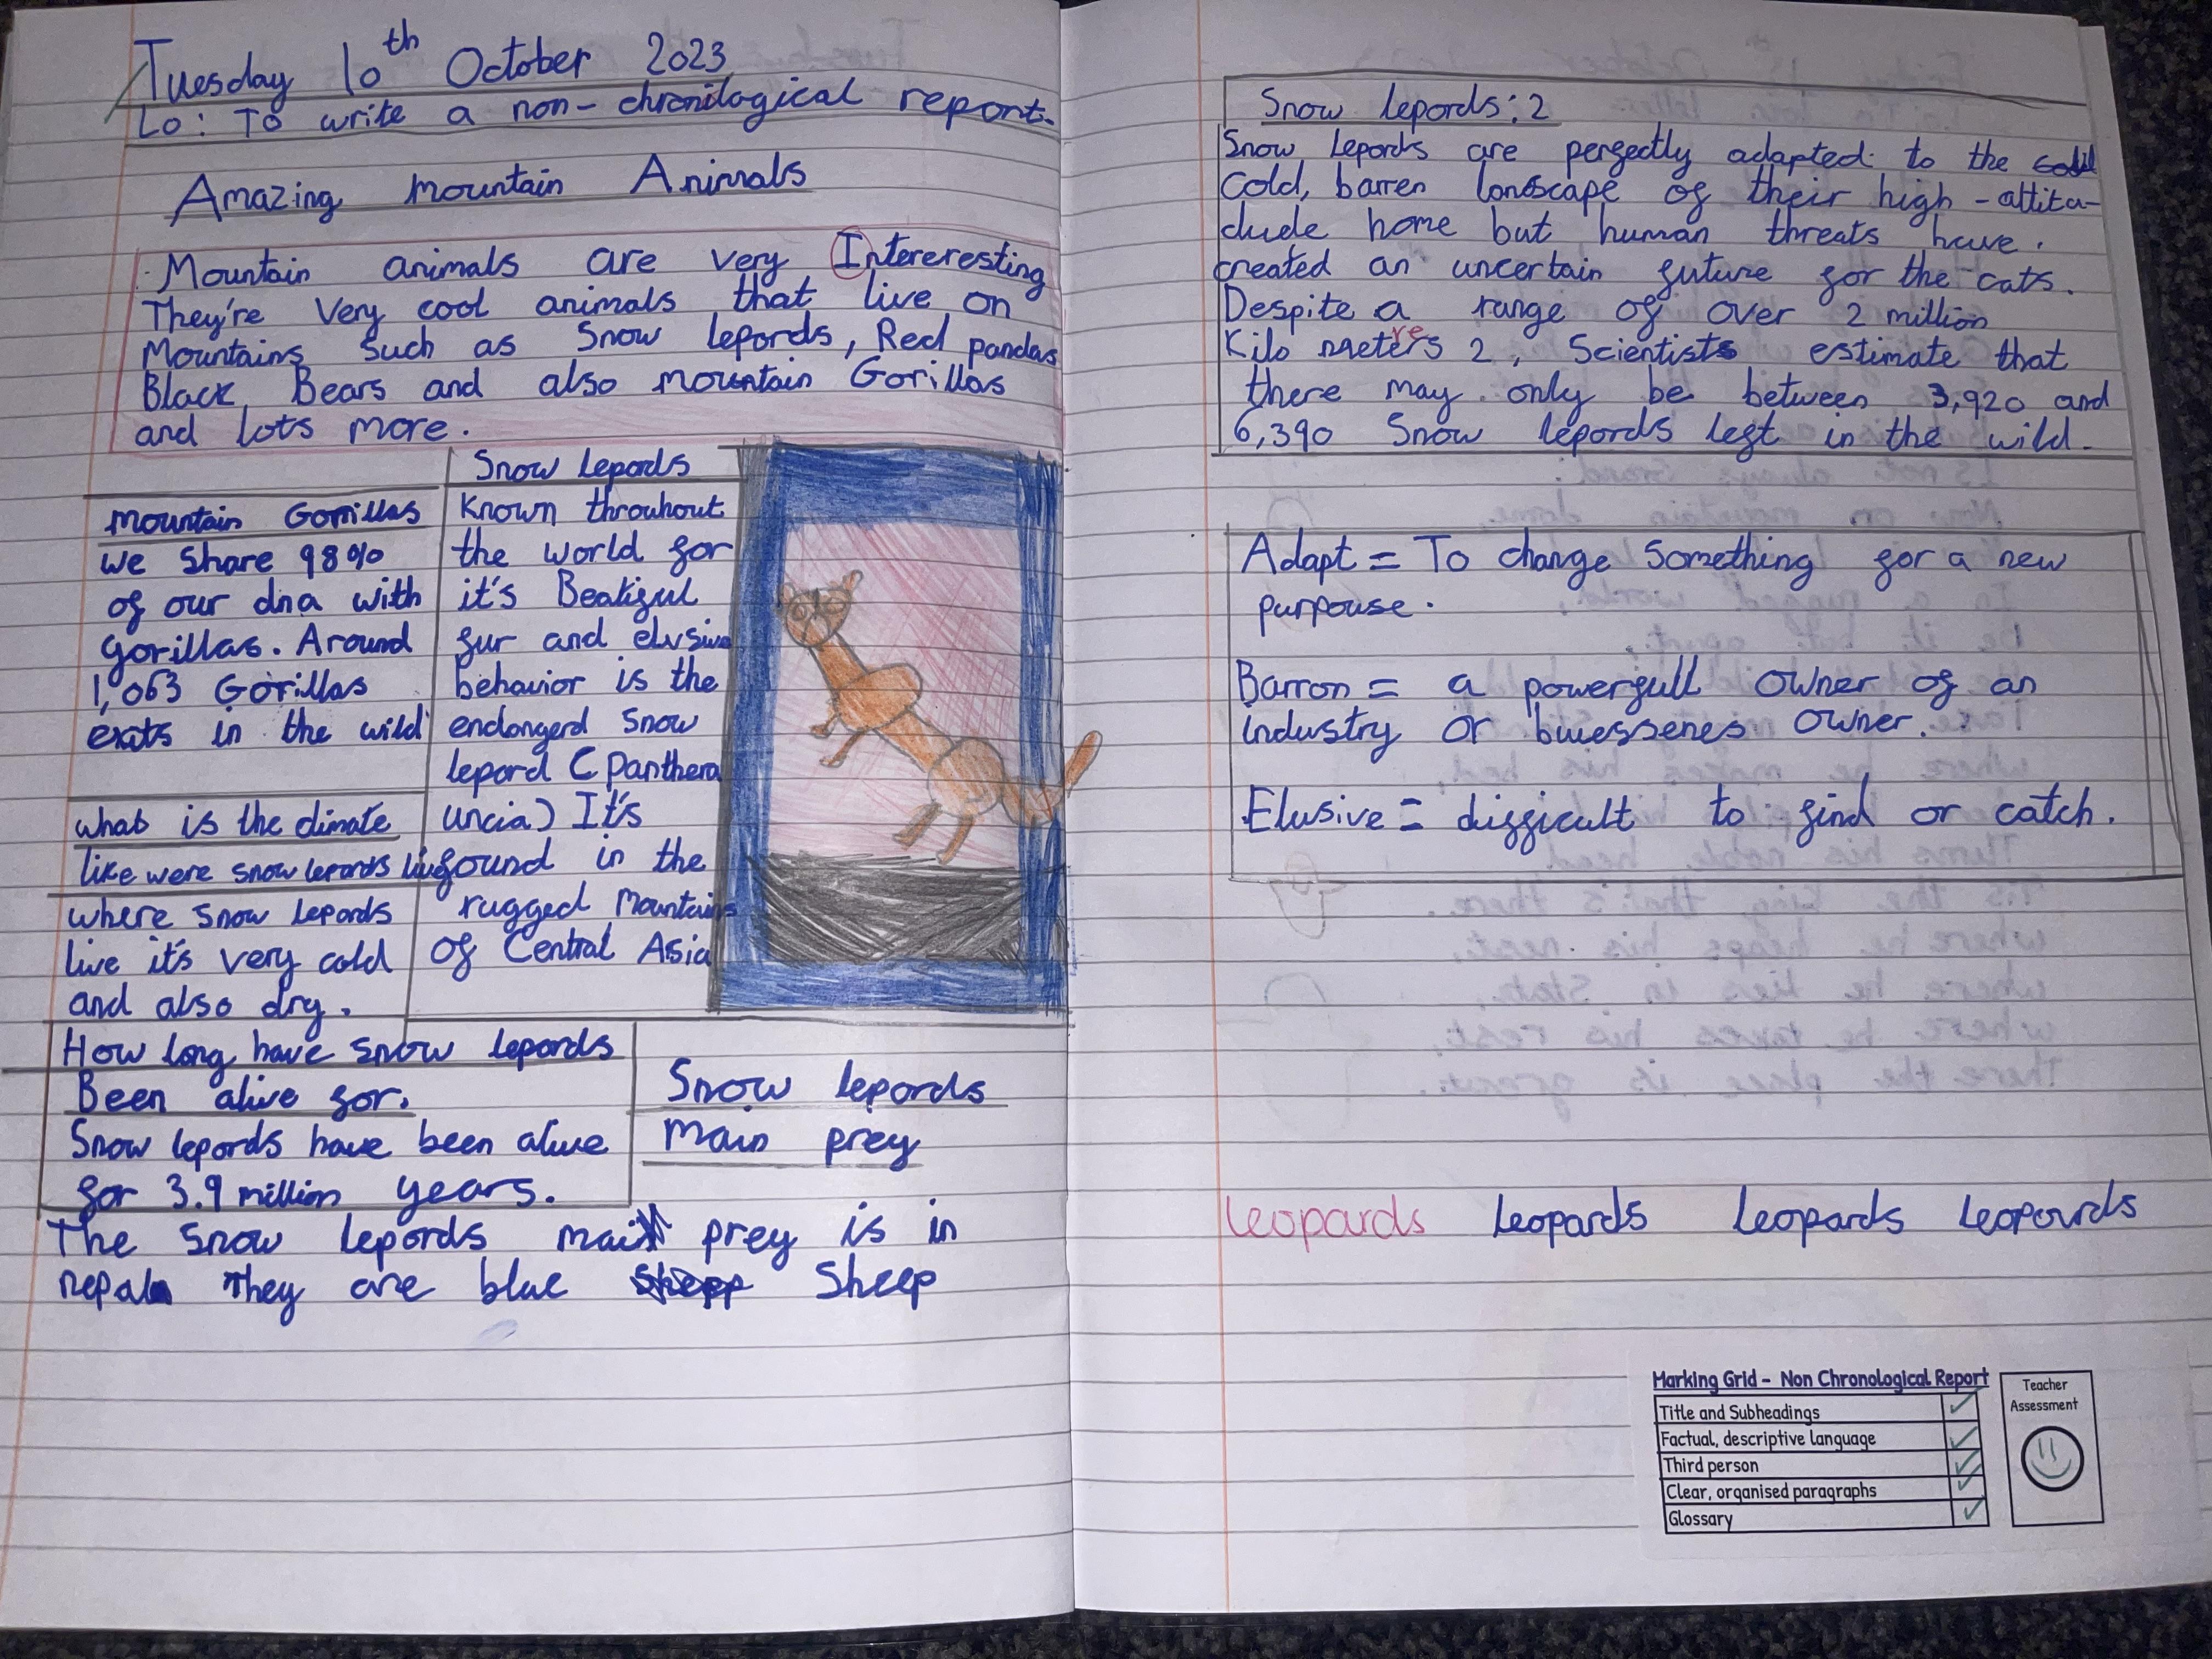 Tuesday 10th October 2023
Lo: To write a non-chronilogical report.
Amazing Mountain Animals
Mountain animals are very Intereresting
They're Very cool animals that live on
Mountains such as Snow lepords, Red pandas
Black Bears and also mountain Gorillas
and lots more.
Mountain Gorrillas
we share 98%
of our dna with
gorillas. Around
1,063 Gorillas
exats in the wild
Snow lepords
Known throuhout
the world for
it's Beatiful
fur and elusive
behavior is the
endangerd snow
lepord (Panthera
uncia) It's
found in the
rugged Mountains
of Central Asia
what is the climate
like were snow lepords live
where snow lepords
live it's very cold
and also dry.
How long have snow lepords
Been alive for.
Snow lepords have been alive
for 3.9 million years.
Snow lepords
main prey
The snow lepords main prey is in
nepal They are blue sheep
Snow lepords: 2
Snow lepords are perfectly adapted to the
cold, barren landscape of their high-altita-
dude home but human threats have
created an uncertain future for the cats.
Despite a range of over 2 million
Kilo meters 2, Scientists estimate that
re
there may only be between 3,920 and
6,390 Snow lepords left in the wild.
Adapt = To change something for a new
purpouse.
Barron = a powerfull owner of an
industry or buiessenes owner.
Elusive = difficult to find or catch.
leopards leopards leopards leopourds
Marking Grid – Non Chronological Report
Title and Subheadings
Factual, descriptive language
Third person
Clear, organised paragraphs
Glossary
Teacher
Assessment